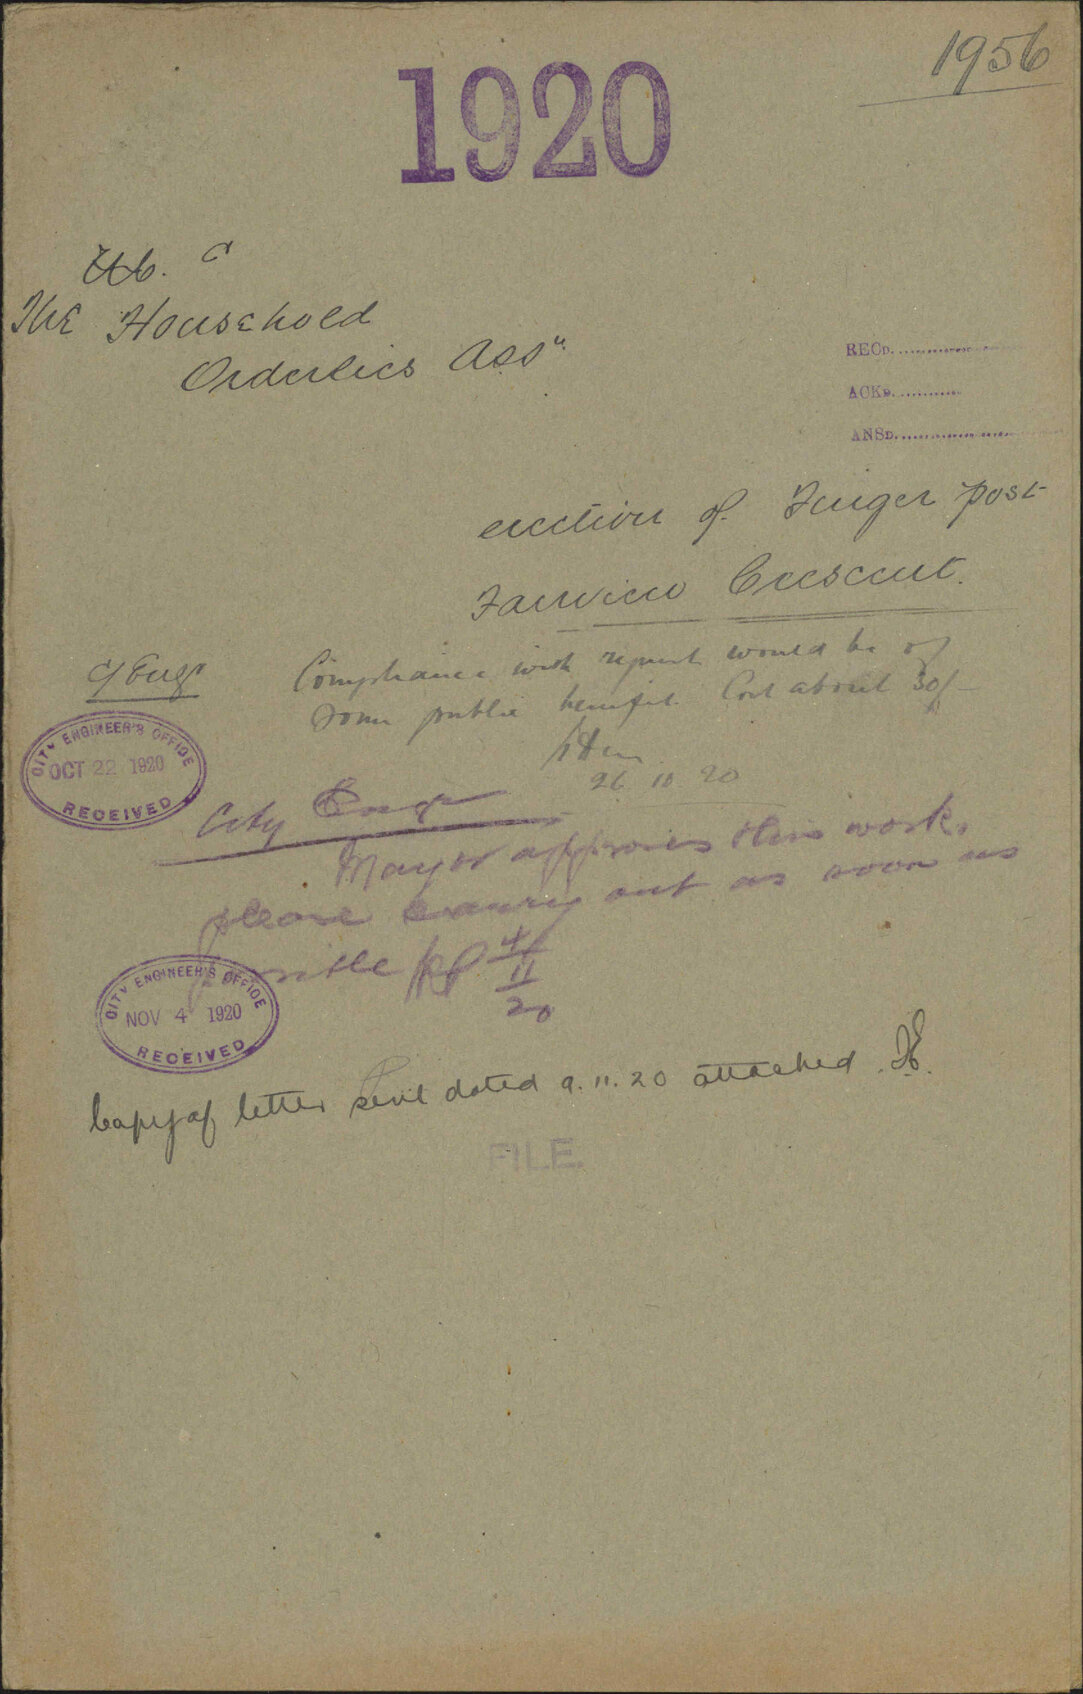 1956
1920
The Household
Orderlies Assn
RECD.
ACKD.
ANSD.
erection of Finger post
Fairview Crescent.
C/Engr
Compliance with request would be of
some public benefit. Cost about 30/-
26 10 20
CITY ENGINEER'S OFFICE
OCT 22 1920
RECEIVED
City Engr
Mayor approves this work.
please carry out as soon as
possible
4/11/20
CITY ENGINEER'S OFFICE
NOV 4 1920
RECEIVED
Copy of letter sent dated 9.11.20 attached
FILE.